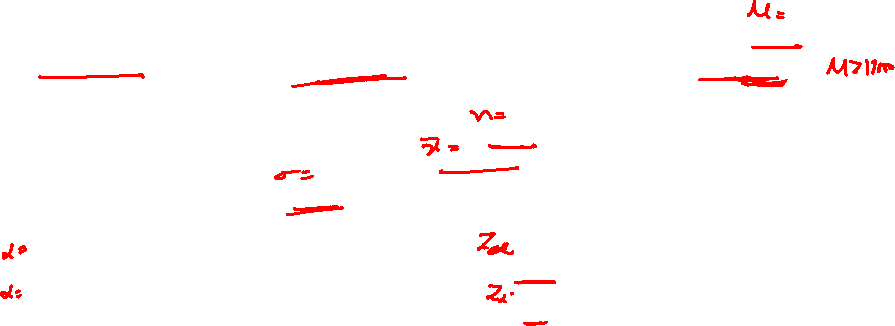 μ=
μ>11m
n=
x̄=
σ=
α=
Zα
α=
Zα